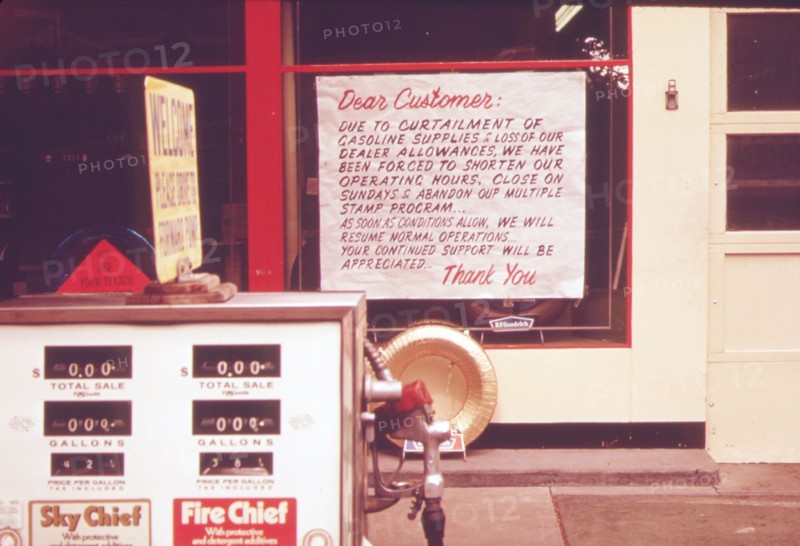 Dear Customer:
DUE TO CURTAILMENT OF
GASOLINE SUPPLIES & LOSS OF OUR
DEALER ALLOWANCES, WE HAVE
BEEN FORCED TO SHORTEN OUR
OPERATING HOURS, CLOSE ON
SUNDAYS & ABANDON OUR MULTIPLE
STAMP PROGRAM...
AS SOON AS CONDITIONS ALLOW, WE WILL
RESUME NORMAL OPERATIONS...
YOUR CONTINUED SUPPORT WILL BE
APPRECIATED...
Thank You
WELCOME
PLEASE
FORWARD
YOUR TEXACO
B.F.Goodrich
$ 0.00 $ 0.00
TOTAL SALE TOTAL SALE
00.0 00.0
GALLONS GALLONS
42 38
PRICE PER GALLON PRICE PER GALLON
TAX INCLUDED TAX INCLUDED
Sky Chief Fire Chief
With protective With protective
and detergent additives and detergent additives
PHOTO12